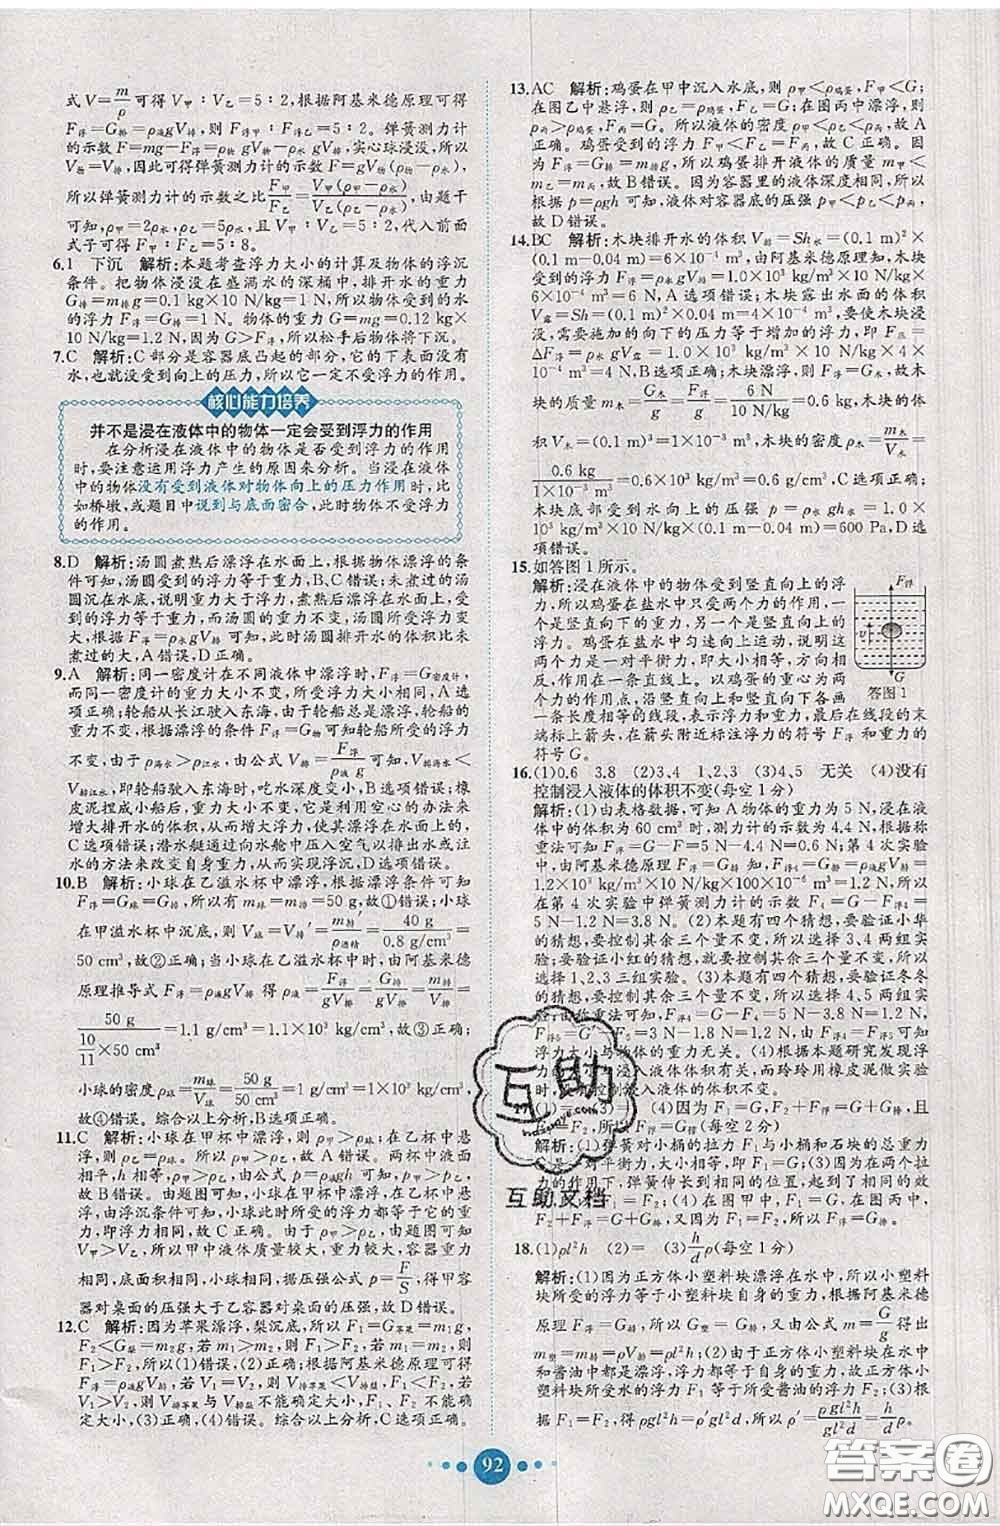 式V=m/ρ可得V甲∶V乙=5∶2,根据阿基米德原理可得
F浮=G排=ρ液gV排,则F浮甲∶F浮乙=5∶2。弹簧测力计
的示数F=mg-F浮=ρ物gV物-ρ水gV排,实心球浸没,所以
V物=V排,因此可得弹簧测力计的示数F=gV物(ρ物-ρ水),
所以弹簧测力计的示数之比F甲/F乙=V甲(ρ甲-ρ水)/V乙(ρ乙-ρ水),由题干
可知,ρ甲=2ρ水,ρ乙=5ρ水,V甲∶V乙=5∶2,代入前面
式子可得F甲∶F乙=5∶8。
6.1 下沉 解析:本题考查浮力大小的计算及物体的浮沉
条件。把物体浸没在盛满水的深桶中,排开水的重力
G排=m排g=0.1 kg×10 N/kg=1 N,所以物体受到的水
的浮力F浮=G排=1 N。物体的重力G=mg=0.12 kg
×10 N/kg=1.2 N,因为G>F浮,所以松手后物体将下沉。
7.C 解析:C部分是容器底凸起的部分,它的下表面没有
水,也就没受到向上的压力,所以它一定不受浮力的作用。
核心能力培养
并不是浸在液体中的物体一定会受到浮力的作用
在分析浸在液体中的物体是否受到浮力的作用
时,要注意运用浮力产生的原因来分析。当浸在液体
中的物体没有受到液体对物体向上的压力作用时,比
如桥墩,或题目中说到与底面密合,此时物体不受浮力
的作用。
8.D 解析:汤圆煮熟后漂浮在水面上,根据物体漂浮的条
件可知,汤圆受到的浮力等于重力,B、C错误;未煮过的汤
圆沉在水底,说明重力大于浮力,煮熟后漂浮在水面上,受
到的浮力等于重力,而汤圆的重力不变,汤圆所受浮力变
大,根据F浮=ρ水gV排可知,此时汤圆排开水的体积比未
煮过的大,A错误,D正确。
9.A 解析:同一密度计在不同液体中漂浮,F浮=G密度计,
而同一密度计的重力大小不变,所受浮力大小相同,A选
项正确;轮船从长江驶入东海,由于轮船总是漂浮,轮船的
重力不变,根据漂浮的条件F浮=G物可知轮船所受的浮力
不变,由于ρ海水>ρ江水,由公式V排=F浮/ρ液g可得,V排海水<
V排江水,即轮船驶入东海时,吃水深度变小,B选项错误;橡
皮泥捏成小船后,重力大小不变,它是利用空心的办法增
大排开水的体积,从而增大浮力,使其漂浮在水面上的,
C选项错误;潜水艇通过向水舱中压入空气以排出水或注
水的方法来改变自身重力,从而实现浮沉,D选项错误。
10.B 解析:小球在乙溢水杯中漂浮,根据漂浮条件可知
F浮=G球=G排,所以有m球=m排=50 g,故①错误;小球
在甲溢水杯中沉底,则V球=V排′=m排′/ρ酒精=40 g/0.8 g/cm³=
50 cm³,故②正确;当小球在乙溢水杯中时,由阿基米德
原理推导式F浮=ρ液gV排得ρ液=F浮/gV排=G排/gV排=m排/V排=
50 g/(10/11×50 cm³)=1.1 g/cm³=1.1×10³ kg/m³,故③正确;
小球的密度ρ球=m球/V球=50 g/50 cm³=1 g/cm³=1×10³ kg/m³,
故④错误。综合以上分析,B选项正确。
11.C 解析:小球在甲杯中漂浮,则ρ甲>ρ球,在乙杯中悬
浮,则ρ乙=ρ球,所以ρ甲>ρ乙,故A错误。两杯中液面
相平,h相等,由于ρ甲>ρ乙,由公式p=ρgh可知,p甲>
p乙,故B错误。由题图可知,小球在甲杯中漂浮,在乙杯
中悬浮,由浮沉条件可知,小球在此时所受的浮力都等于
小球自身的重力,故C正确。由于ρ甲>ρ乙,由题图可知
V甲>V乙,所以甲中液体质量大,重力大,容器重力
相同,底面积相同,小球相同,据压强公式p=F/S,得甲容
器对桌面的压强大于乙容器对桌面的压强,故D错误。
12.C 解析:因为苹果漂浮,梨沉底,所以F1=G苹果=m1g,
F2<G梨=m2g,若m1>m2,则F1>F2,若F1>F2,不能确
定m1、m2大小,(1)正确,(2)错误;根据阿基米德原理可知,
F1>F2,则V1>V2,若V1>V2,则F1>F2,(4)错误;
若V1=V2,因为V排苹果<V排梨,F1<F2;若
V1>V2,V排苹果与V排梨不能确定大小关系,F1、F2不能
确定大小,(3)正确。综合以上分析,C选项正确。
13.AC 解析:鸡蛋在甲中沉入水底,则ρ甲<ρ鸡蛋,F甲<G;
在图乙中悬浮,则ρ乙=ρ鸡蛋,F乙=G;在图丙中漂浮,则
ρ丙>ρ鸡蛋,F丙=G。所以液体的密度ρ甲<ρ乙<ρ丙,故A
正确。鸡蛋受到的浮力F甲<F乙=F丙,故C正确。因
为F浮=G排=m排g,所以鸡蛋排开液体的质量m甲<
m乙=m丙,故B错误。因为容器里的液体深度相同,所以
根据p=ρgh可知,液体对容器底的压强p甲<p乙<p丙,
故D错误。
14.BC 解析:木块排开水的体积V排=Sh水=(0.1 m)²×
(0.1 m-0.04 m)=6×10⁻⁴ m³,由阿基米德原理知,木块
受到的浮力F浮=ρ水gV排=1.0×10³ kg/m³×10 N/kg×
6×10⁻⁴ m³=6 N,A选项错误;木块露出水面的体积
V露=Sh=(0.1 m)²×0.04 m=4×10⁻⁴ m³,要使木块浸
没,需要施加的向下的压力等于增加的浮力,即F压=
ΔF浮=ρ水gV露=1.0×10³ kg/m³×10 N/kg×4×
10⁻⁴ m³=4 N,B选项正确;木块漂浮,G木=F浮,故木
块的质量m木=G木/g=F浮/g=6 N/10 N/kg=0.6 kg,木块的体
积V木=(0.1 m)³=1×10⁻³ m³,木块的密度ρ木=m木/V木=
0.6 kg/1×10⁻³ m³=0.6×10³ kg/m³=0.6 g/cm³,C选项正确;
木块底部受到水向上的压强p=ρ水gh水=1.0×
10³ kg/m³×10 N/kg×(0.1 m-0.04 m)=600 Pa,D选
项错误。
15.如答图1所示。
解析:浸在液体中的物体受到竖直向上的浮
力,所以鸡蛋在盐水中只受两个力的作用,一
个是竖直向下的重力,一个是竖直向上的浮
力。鸡蛋在盐水中匀速向上运动,说明这两
个力是一对平衡力,即大小相等,方向相
反,作用在一条直线上。以鸡蛋的重心为两
个力的作用点,沿竖直向上和竖直向下各画
一条长度相等的线段,表示浮力和重力,最后在线段的末
端标上箭头,在箭头附近标注浮力的符号F浮和重力的
符号G。
F浮
v
G
答图1
16.(1)0.6 3.8 (2)3、4 1、2、3 (3)4、5 无关 (4)没有
控制浸入液体的体积不变(每空1分)
解析:(1)由表格数据,可知A物体的重力为5 N,浸在液
体中的体积为60 cm³时,测力计的示数为4.4 N,根据称
重法可知:F浮=G-F=5 N-4.4 N=0.6 N;第4次实
验中,根据阿基米德原理F浮=G排知,F浮4=ρ液gV排=
1.2×10³ kg/m³×10 N/kg×100×10⁻⁶ m³=1.2 N,所以
在第4次实验中弹簧测力计的示数F4=G-F浮4=
5 N-1.2 N=3.8 N。(2)本题有四个猜想,要验证小华
的猜想,要控制其余三个量不变,所以选择3、4两组实
验。要验证小红的猜想,要控制其余三个量不变,所以选
择1、2、3三组实验。(3)本题有四个猜想,要验证冬冬
的猜想,要控制其余三个量不变,所以选择4、5两组实
验;由称重法可知,F浮4=G4-F4=5 N-3.8 N=1.2 N,
F浮5=G5-F5=3 N-1.8 N=1.2 N,由F浮4=F浮5可知,
浮力大小与物体的重力无关。(4)根据本题研究发现浮
力大小与浸入液体体积有关,而玲玲用橡皮泥做实验
时,没有控制浸入液体的体积不变。
(4)因为F1=G,F2+F浮=G,且
(每空2分)
解析:(1)弹簧对小桶的拉力F1与小桶和石块的总重力
(4)在图甲中,F1=G,在图丙中,
F2+F浮=G+G排,又因为F1=F2,所以F浮=G排。
18.(1)ρl²h (2)= (3)h/d ρ(每空1分)
解析:(1)因为正方体小塑料块漂浮在水中,所以小塑料
块所受的浮力等于小塑料块自身的重力。根据阿基米德
原理F浮=G排,所以G塑=G排,又因为m=G/g得出
m塑=m排=ρV排=ρl²h。(2)因为正方体小塑料块在水中
和酱油中都是漂浮,浮力都等于自身的重力,故正方体小
塑料块在水中的浮力F1等于所受酱油的浮力F2。(3)根
据F1=F2,得ρgl²h=ρ′gl²d,所以ρ′=ρgl²h/gl²d=h/d ρ。
互助
互助文档
92
答案圈
MXQE.COM